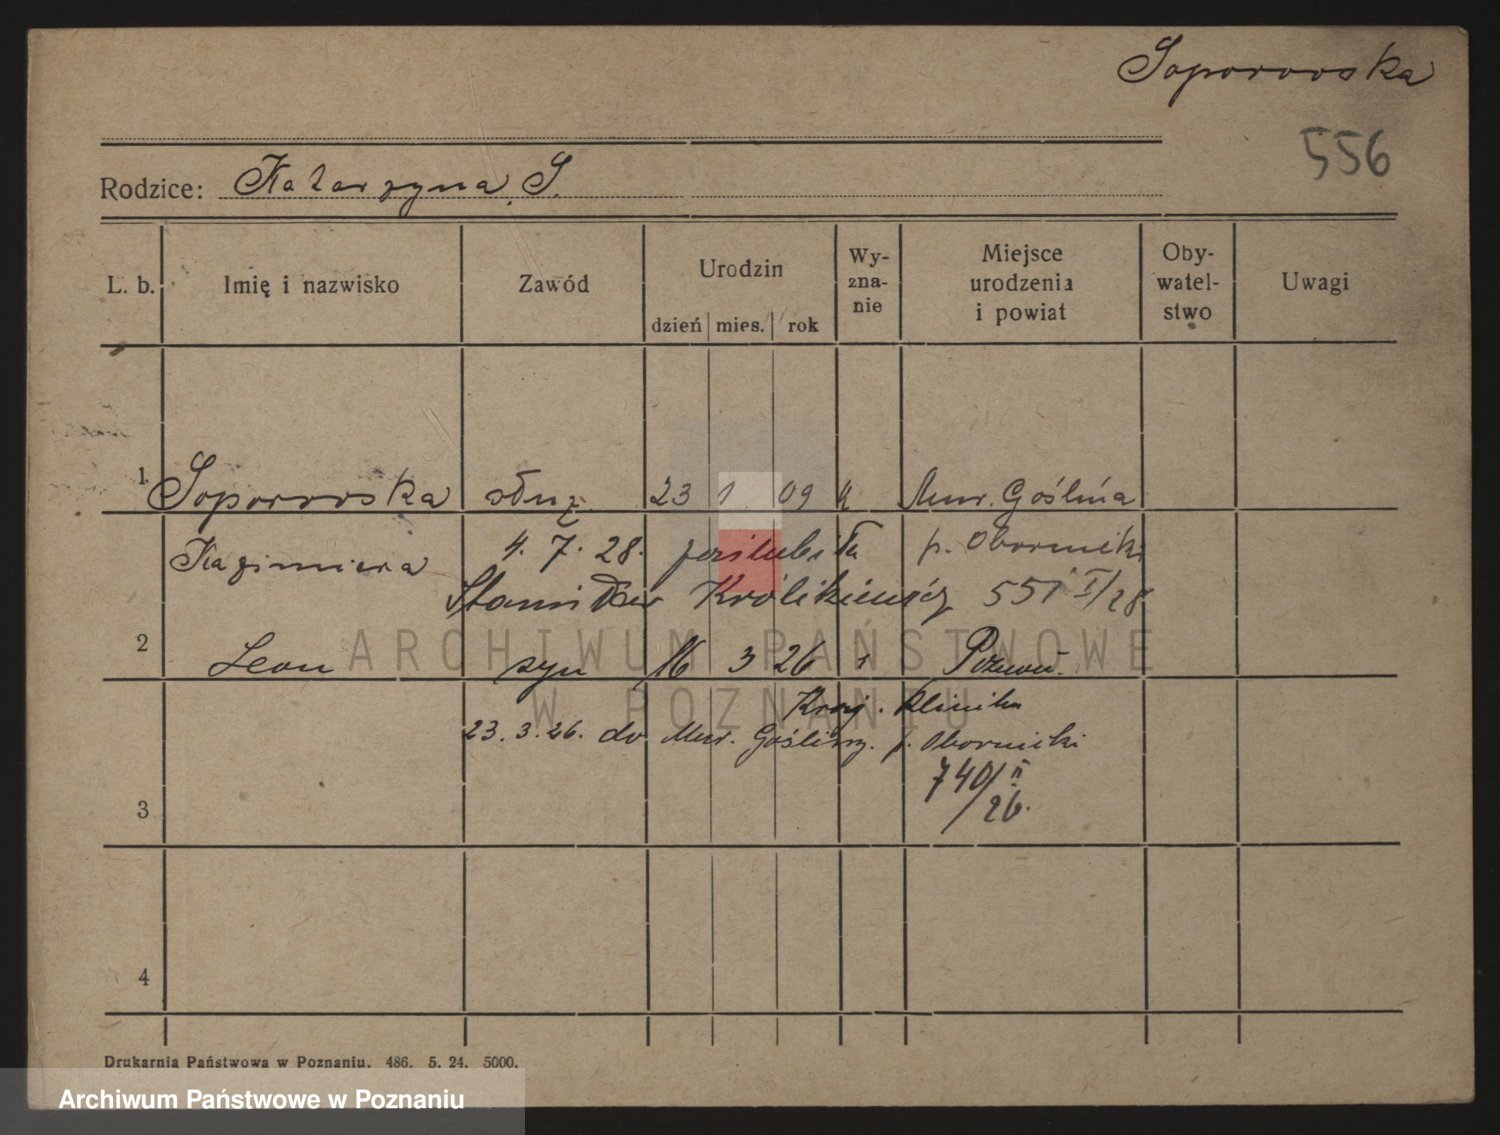 Soporowska
556
Rodzice: Katarzyna S.
L. b. Imię i nazwisko Zawód Urodzin dzień mies. rok Wy-zna-nie Miejsce urodzenia i powiat Oby-watel-stwo Uwagi
1. Soporowska służ. 23 1 09 k Mur. Goślina
Kazimiera 4. 7. 28. poślubiła p. Obornicki
Stanisław Królikiewicz 551 I/28
2 Leon syn 16 3 26 Poznań.
Kraj. Klinika
23.3.26. do Mur. Gośliny. p. Obornicki
740/II
26.
3
4
ARCHIWUM PAŃSTWOWE
W POZNANIU
Drukarnia Państwowa w Poznaniu. 486. 5. 24. 5000.
Archiwum Państwowe w Poznaniu